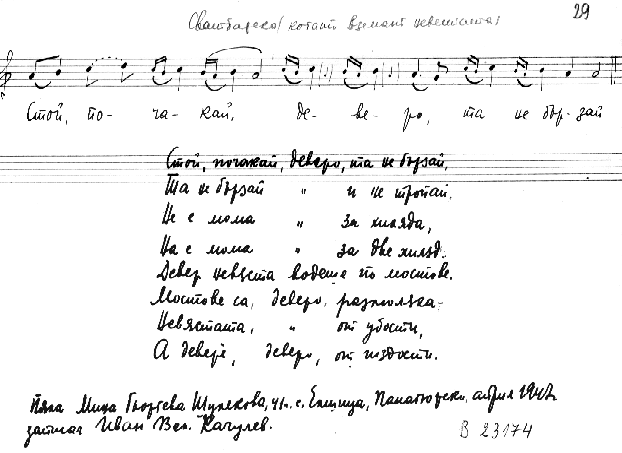 29
Сватбарска (когато вземат невестата)
Стой, по- ча- кай, де- ве- ро, та не бър-зай
Стой, почакай, деверо, та не бързай,
Та не бързай " и не тропай.
Не е мома " за хиляда,
На е мома " за две хиляд.
Девер невяста водеше по мостове.
Мостове са, деверо,
Невястата, " от убости,
А деверè, деверо, от
Пяла Мина Георгева Шулекова, 41 г. с. Елшица, Панагюрско, април 1947
записал Иван Вас. Качулев.
В 23174